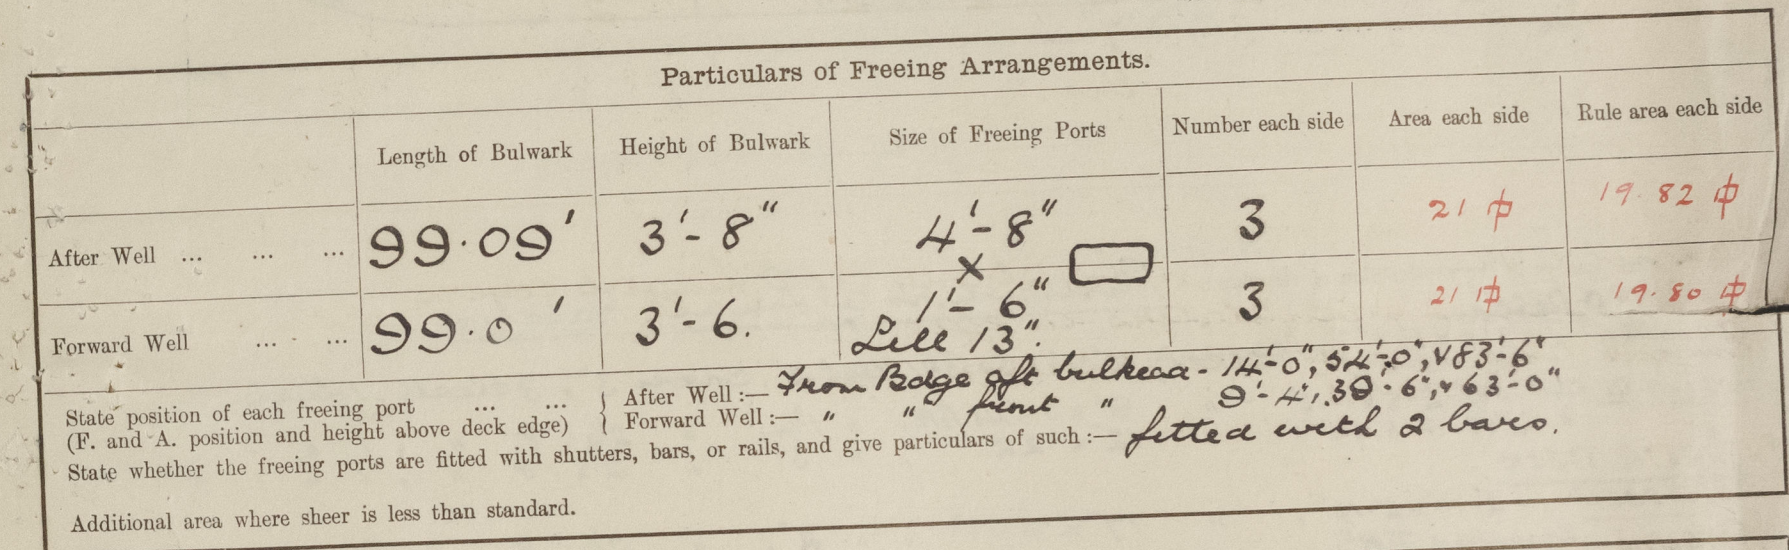 Particulars of Freeing Arrangements.
Length of Bulwark Height of Bulwark Size of Freeing Ports Number each side Area each side Rule area each side
After Well ... ... ... 99.09' 3'-8" 4'-8" 3 21 中 19.82 中
x
Forward Well ... ... 99.0' 3'-6. 1'-6" 3 21 中 19.80 中
Sill 13".
State position of each freeing port ... ... After Well :— From Bdge aft bulkhead - 14'-0", 54'-0", & 83'-6"
(F. and A. position and height above deck edge) Forward Well :— " " front " 9'-4", 39'-6", & 63'-0"
State whether the freeing ports are fitted with shutters, bars, or rails, and give particulars of such :— fitted with 2 bars.
Additional area where sheer is less than standard.